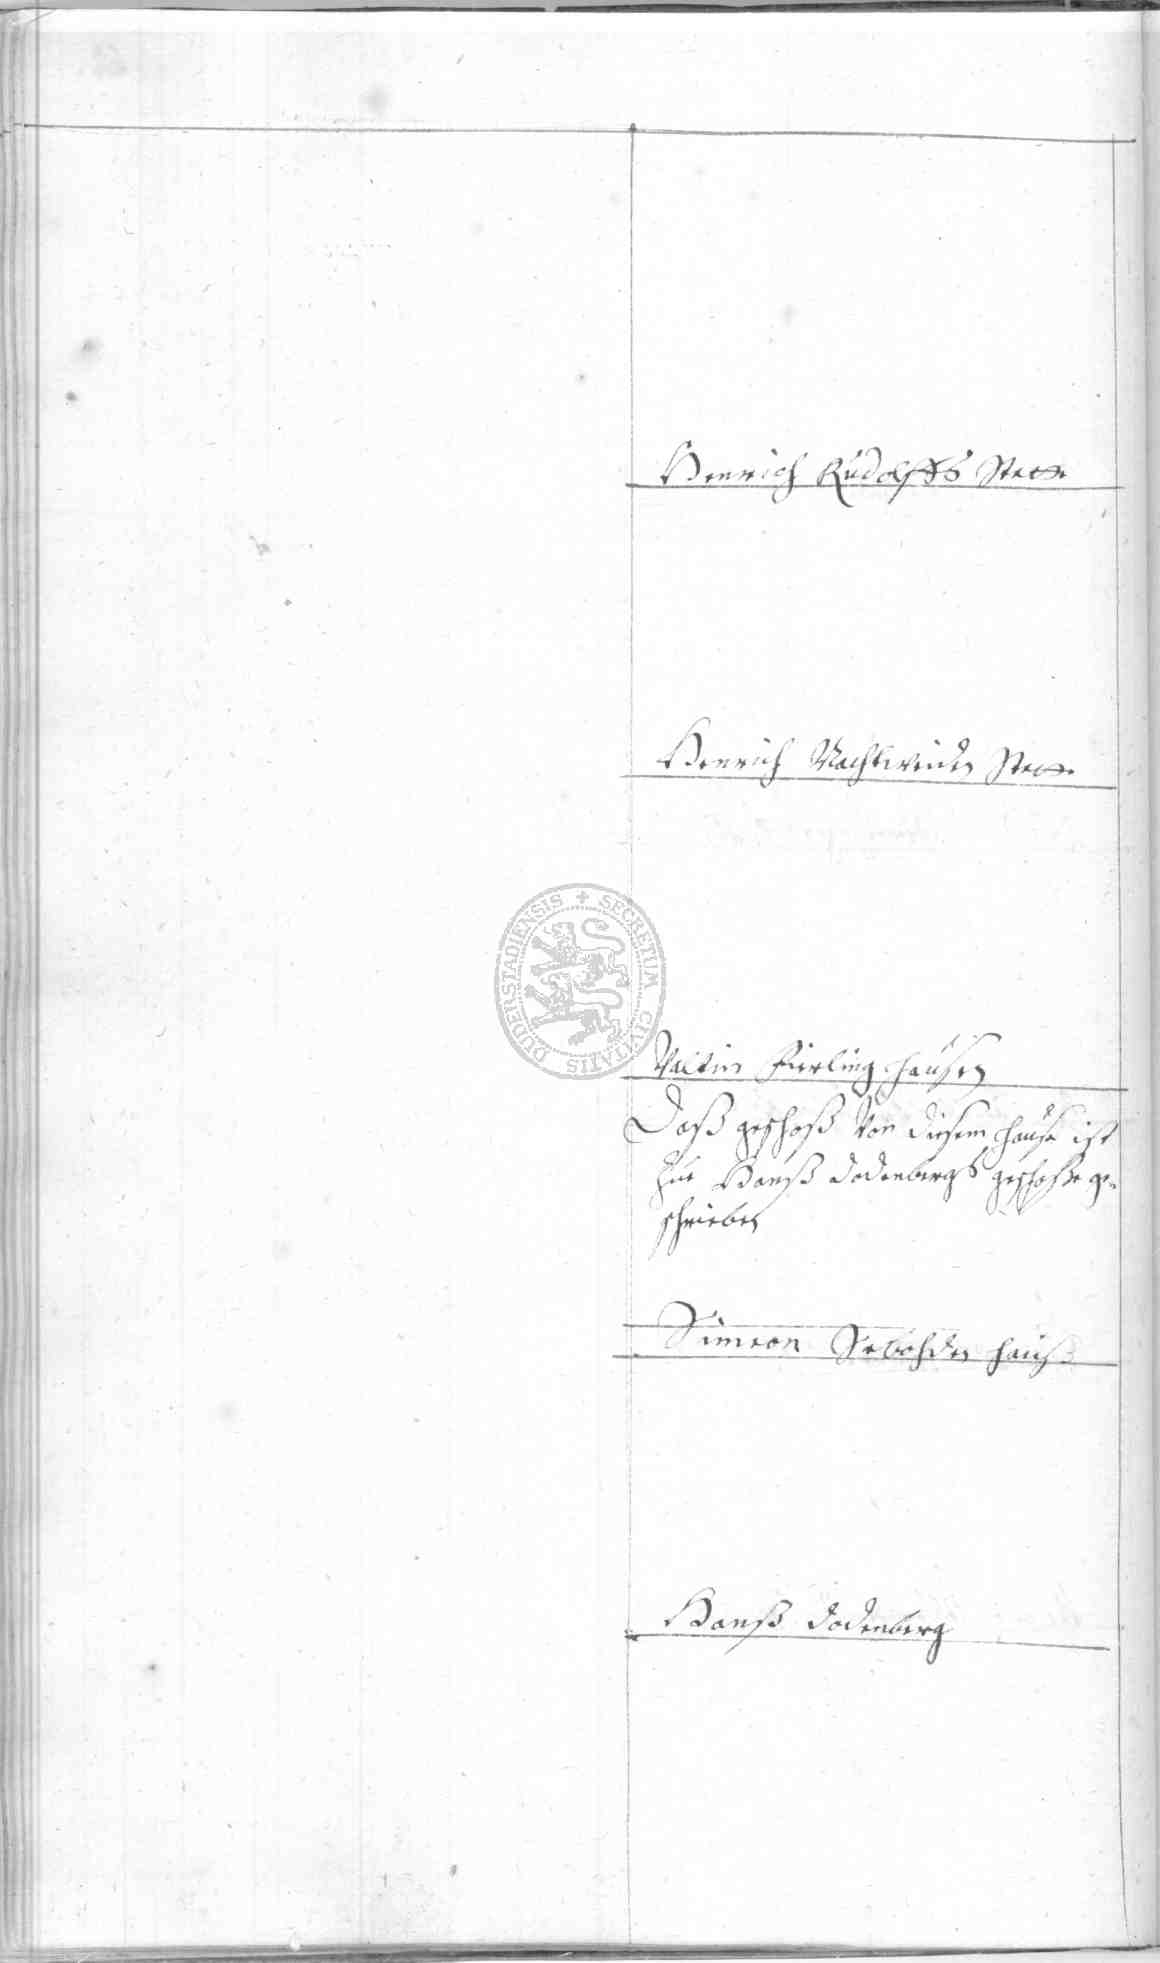 Henrich Rudolffs Stette
Henrich Nachtweiden Stette
SECRETUM CIVITATIS DUDERSTADIENSIS
Valtin Fierling hausen
Daß geschoß von diesem hause ist
zue Hanß Dodenbergs geschosse ge-
schrieben
Simeon hauß
Hanß Dodenberg